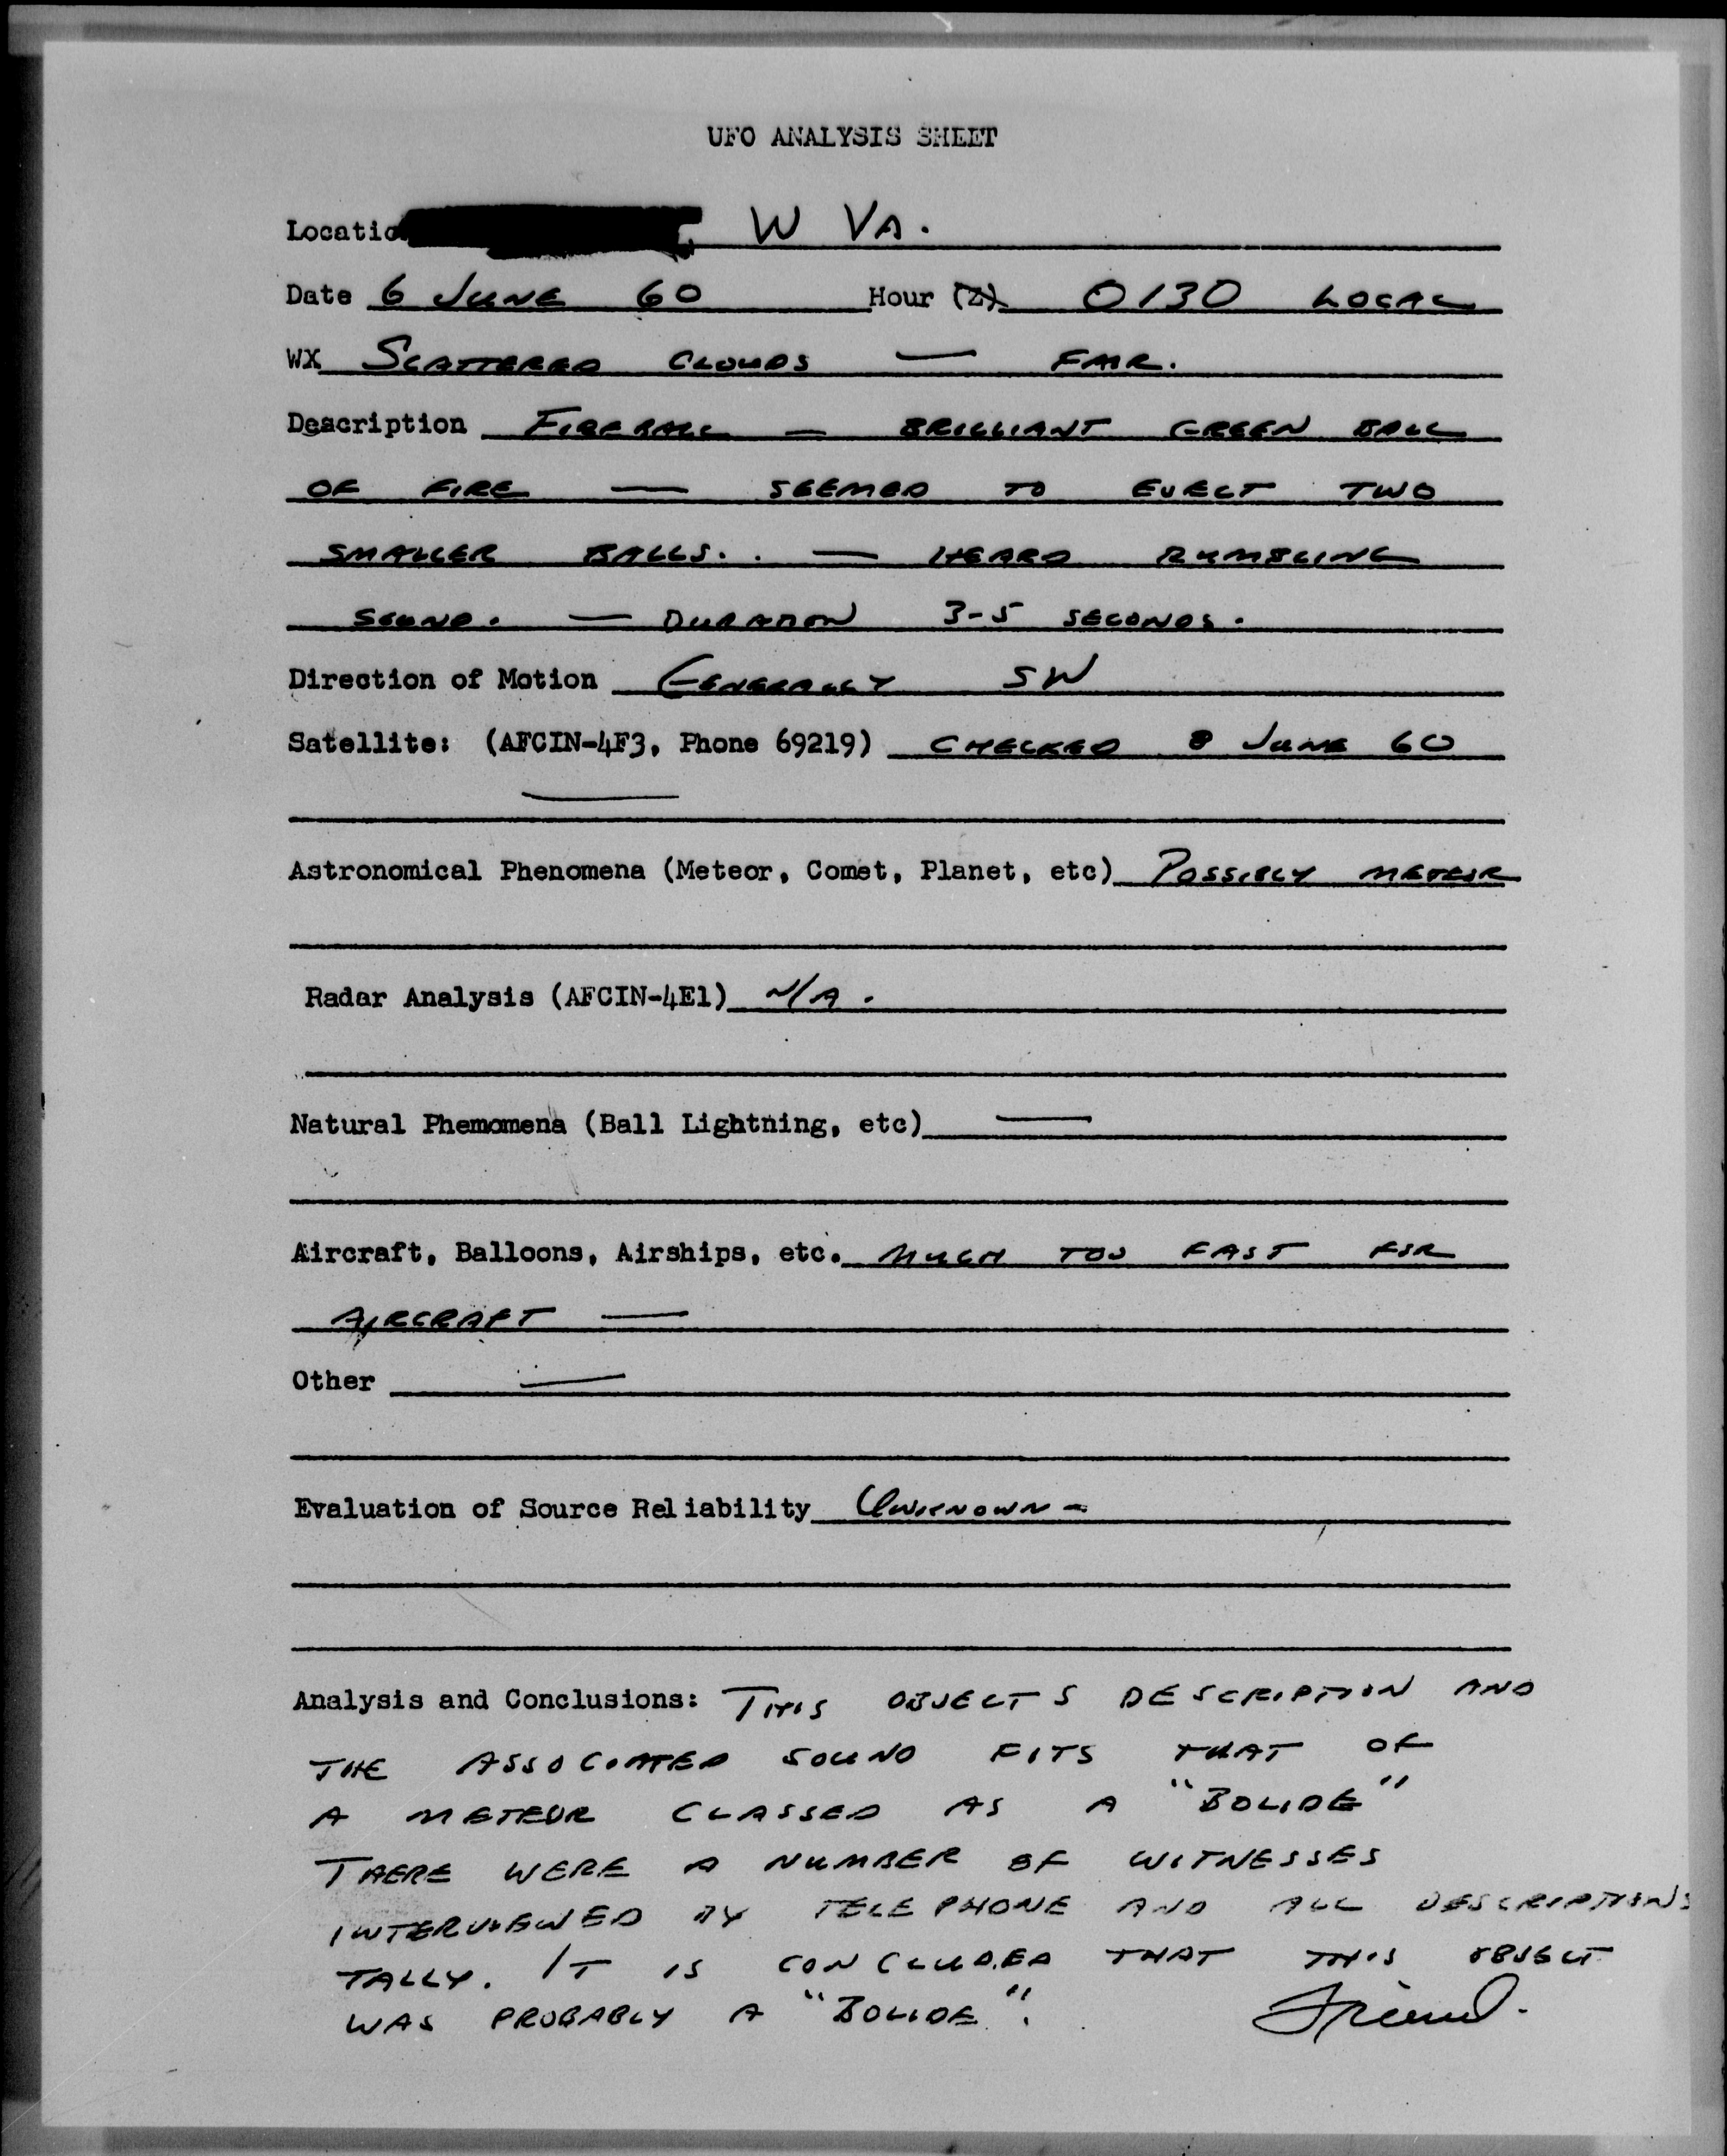 UFO ANALYSIS SHEET
Locatio W VA.
Date 6 JUNE 60 Hour (Z) 0130 LOCAL
WX SCATTERED CLOUDS — FAIR.
Description FIREBALL — BRILLIANT GREEN BALL
OF FIRE — SEEMED TO EJECT TWO
SMALLER BALLS. . — HEARD RUMBLING
SOUND. — DURATION 3-5 SECONDS.
Direction of Motion GENERALLY SW
Satellite: (AFCIN-4F3, Phone 69219) CHECKED 8 JUNE 60
—
Astronomical Phenomena (Meteor, Comet, Planet, etc) POSSIBLY METEOR
Radar Analysis (AFCIN-4E1) N/A.
Natural Phemomena (Ball Lightning, etc) —
Aircraft, Balloons, Airships, etc. MUCH TOO FAST FOR
AIRCRAFT —
Other —
Evaluation of Source Reliability UNKNOWN -
Analysis and Conclusions: THIS OBJECTS DESCRIPTION AND
THE ASSOCIATED SOUND FITS THAT OF
A METEOR CLASSED AS A "BOLIDE"
THERE WERE A NUMBER OF WITNESSES
INTERVIEWED BY TELEPHONE AND ALL DESCRIPTIONS
TALLY. IT IS CONCLUDED THAT THIS OBJECT
WAS PROBABLY A "BOLIDE". Friend.